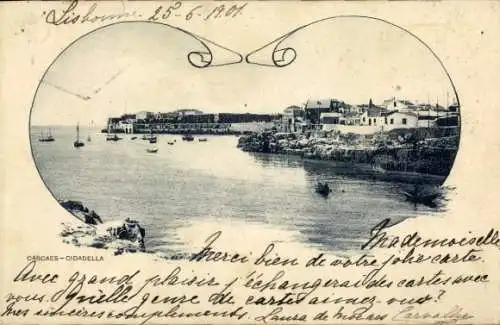 Lisbonne 25-6-1901
CASCAES - CIDADELLA
Mademoiselle,
Merci bien de votre jolie carte.
Avec grand plaisir j'échangerai des cartes avec
vous. Quelle genre de cartes aimez-vous?
Mes sincères complements. Laura de Moraes Carvalho